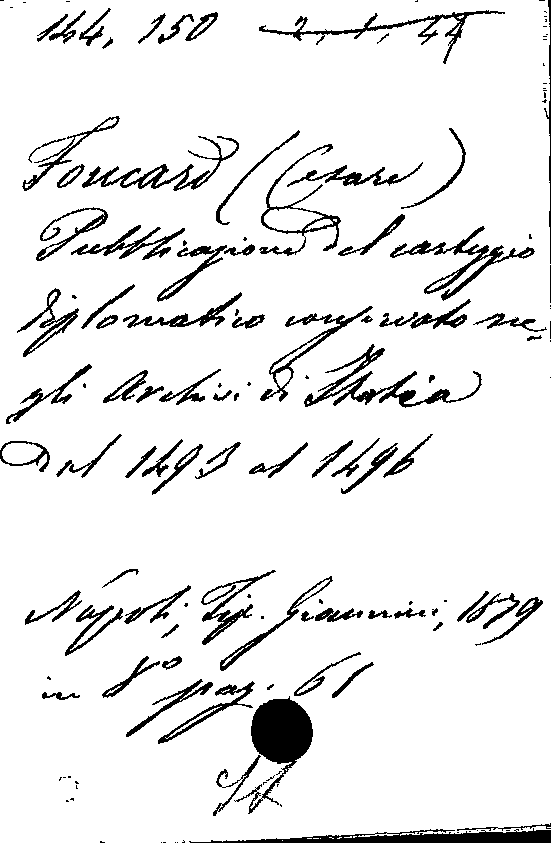 144, 150 2, 1, 44
Foucard (Cesare)
Pubblicazione del carteggio
diplomatico conservato ne-
gli Archivi di Italia
Dal 1493 al 1496
Napoli, Tip. Giannini, 1879
in 8º pag. 61